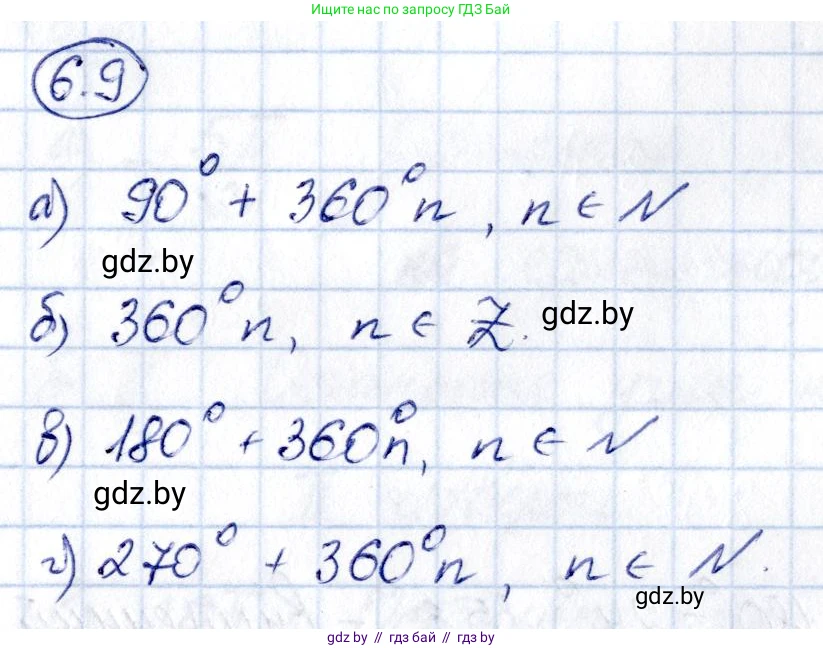 Ищите нас по запросу ГДЗ Бай
6.9
а) 90° + 360°n, n ∈ N
gdz.by
б) 360°n, n ∈ Z.
gdz.by
в) 180° + 360°n, n ∈ N
gdz.by
г) 270° + 360°n, n ∈ N.
gdz.by
gdz by // гдз бай // гдз by